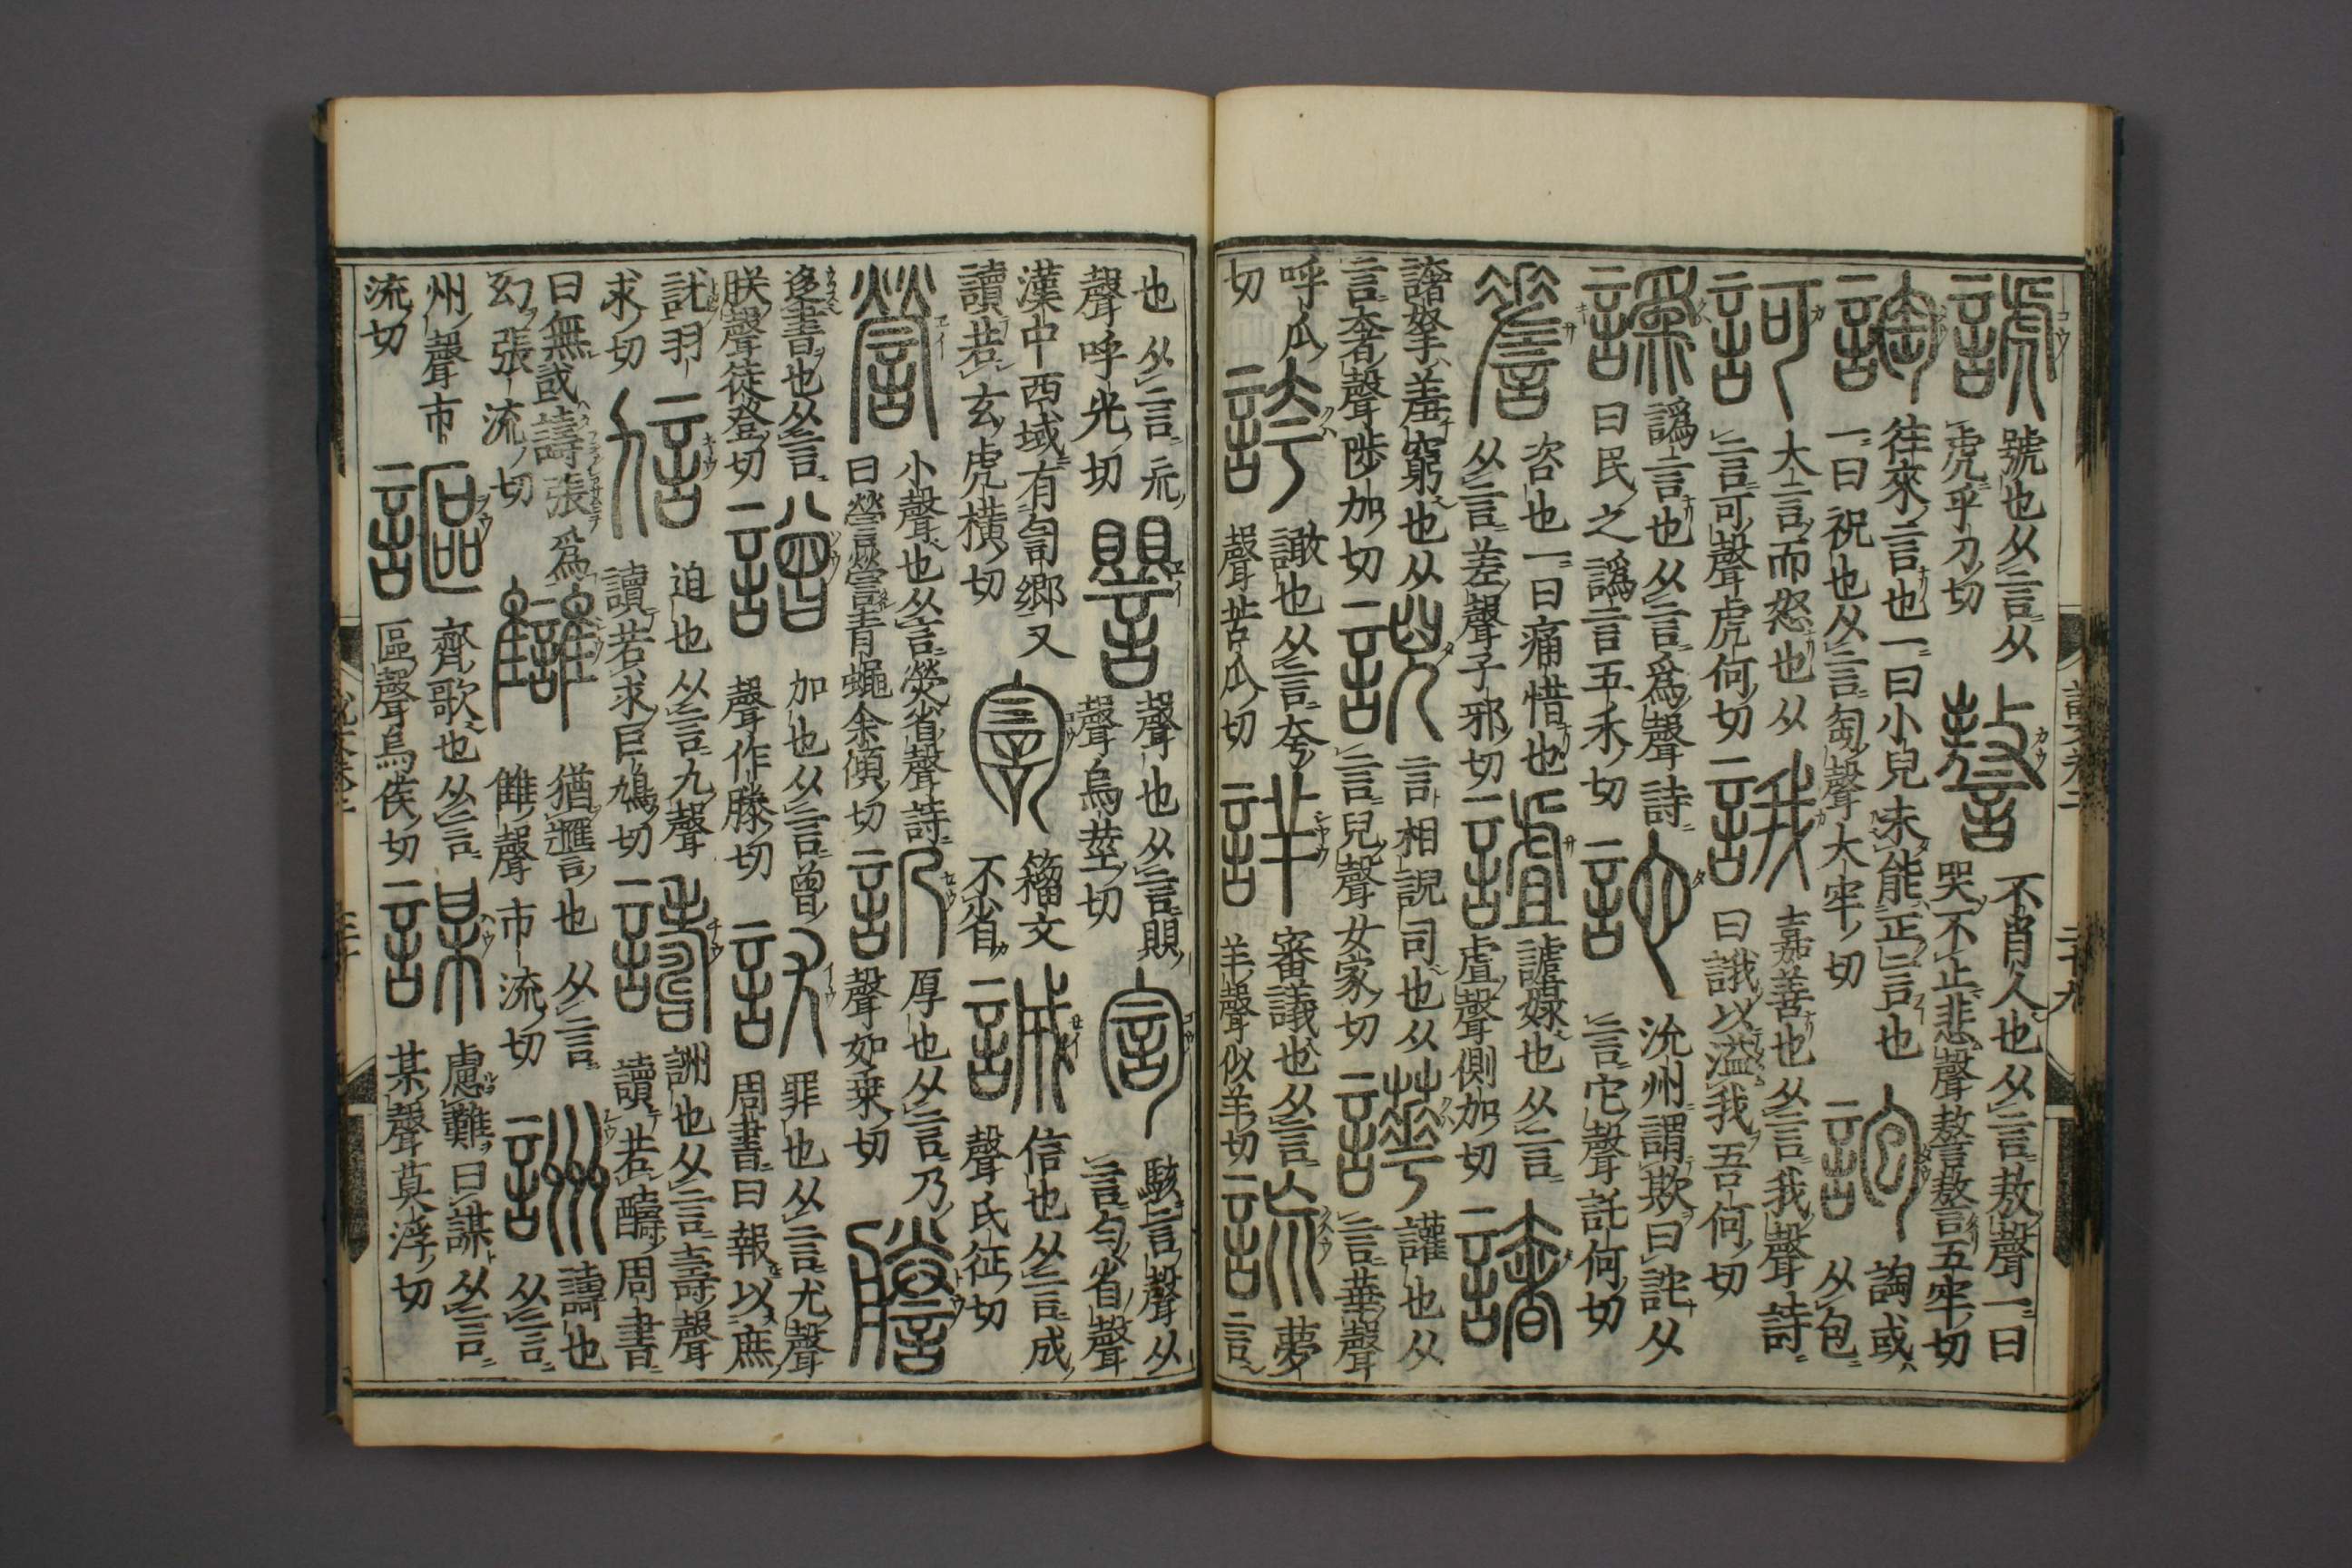 諕 號也从言从虎乎刀切 謷 不肖人也从言敖聲一曰哭不止悲聲謷謷五牢切
䛬 往來言也一曰小兒未能正言也一曰祝也从言匋聲大牢切 䛌 䛬或从包
訶 大言而怒也从言可聲虎何切 誐 嘉善也从言我聲詩曰誐以溢我吾何切
譌 譌言也从言爲聲詩曰民之譌言五禾切 詑 沇州謂欺曰詑从言它聲託何切
𧪘 咨也一曰痛惜也从言差聲子邪切 謯 謯娽也从言虘聲側加切 譇
諸拏羞窮也从言奢聲陟加切 誽 言相誽司也从言兒聲女家切 譁 讙也从言華聲
呼瓜切 誇 譀也从言夸聲苦瓜切 詳 審議也从言羊聲似羊切 𧧢 夢言
也从言巟聲呼光切 譻 聲也从言賏聲烏莖切 訇 駭言聲从言勻省聲
漢中西域有訇鄉又讀若玄虎橫切 籀文不省 誠 信也从言成聲氏征切
謍 小聲也从言熒省聲詩曰謍謍青蠅余傾切 䚮 厚也从言乃聲如乘切 謄
迻書也从言朕聲徒登切 譄 加也从言曾聲作滕切 訧 罪也从言尤聲周書曰報以庶
訧羽求切 訄 迫也从言九聲讀若求巨鳩切 譸 詶也从言壽聲讀若醻周書
曰無或譸張爲幻張流切 讎 猶䜴也从言雔聲市流切 詶 譸也从言
州聲市流切 謳 齊歌也从言區聲烏侯切 謀 慮難曰謀从言某聲莫浮切